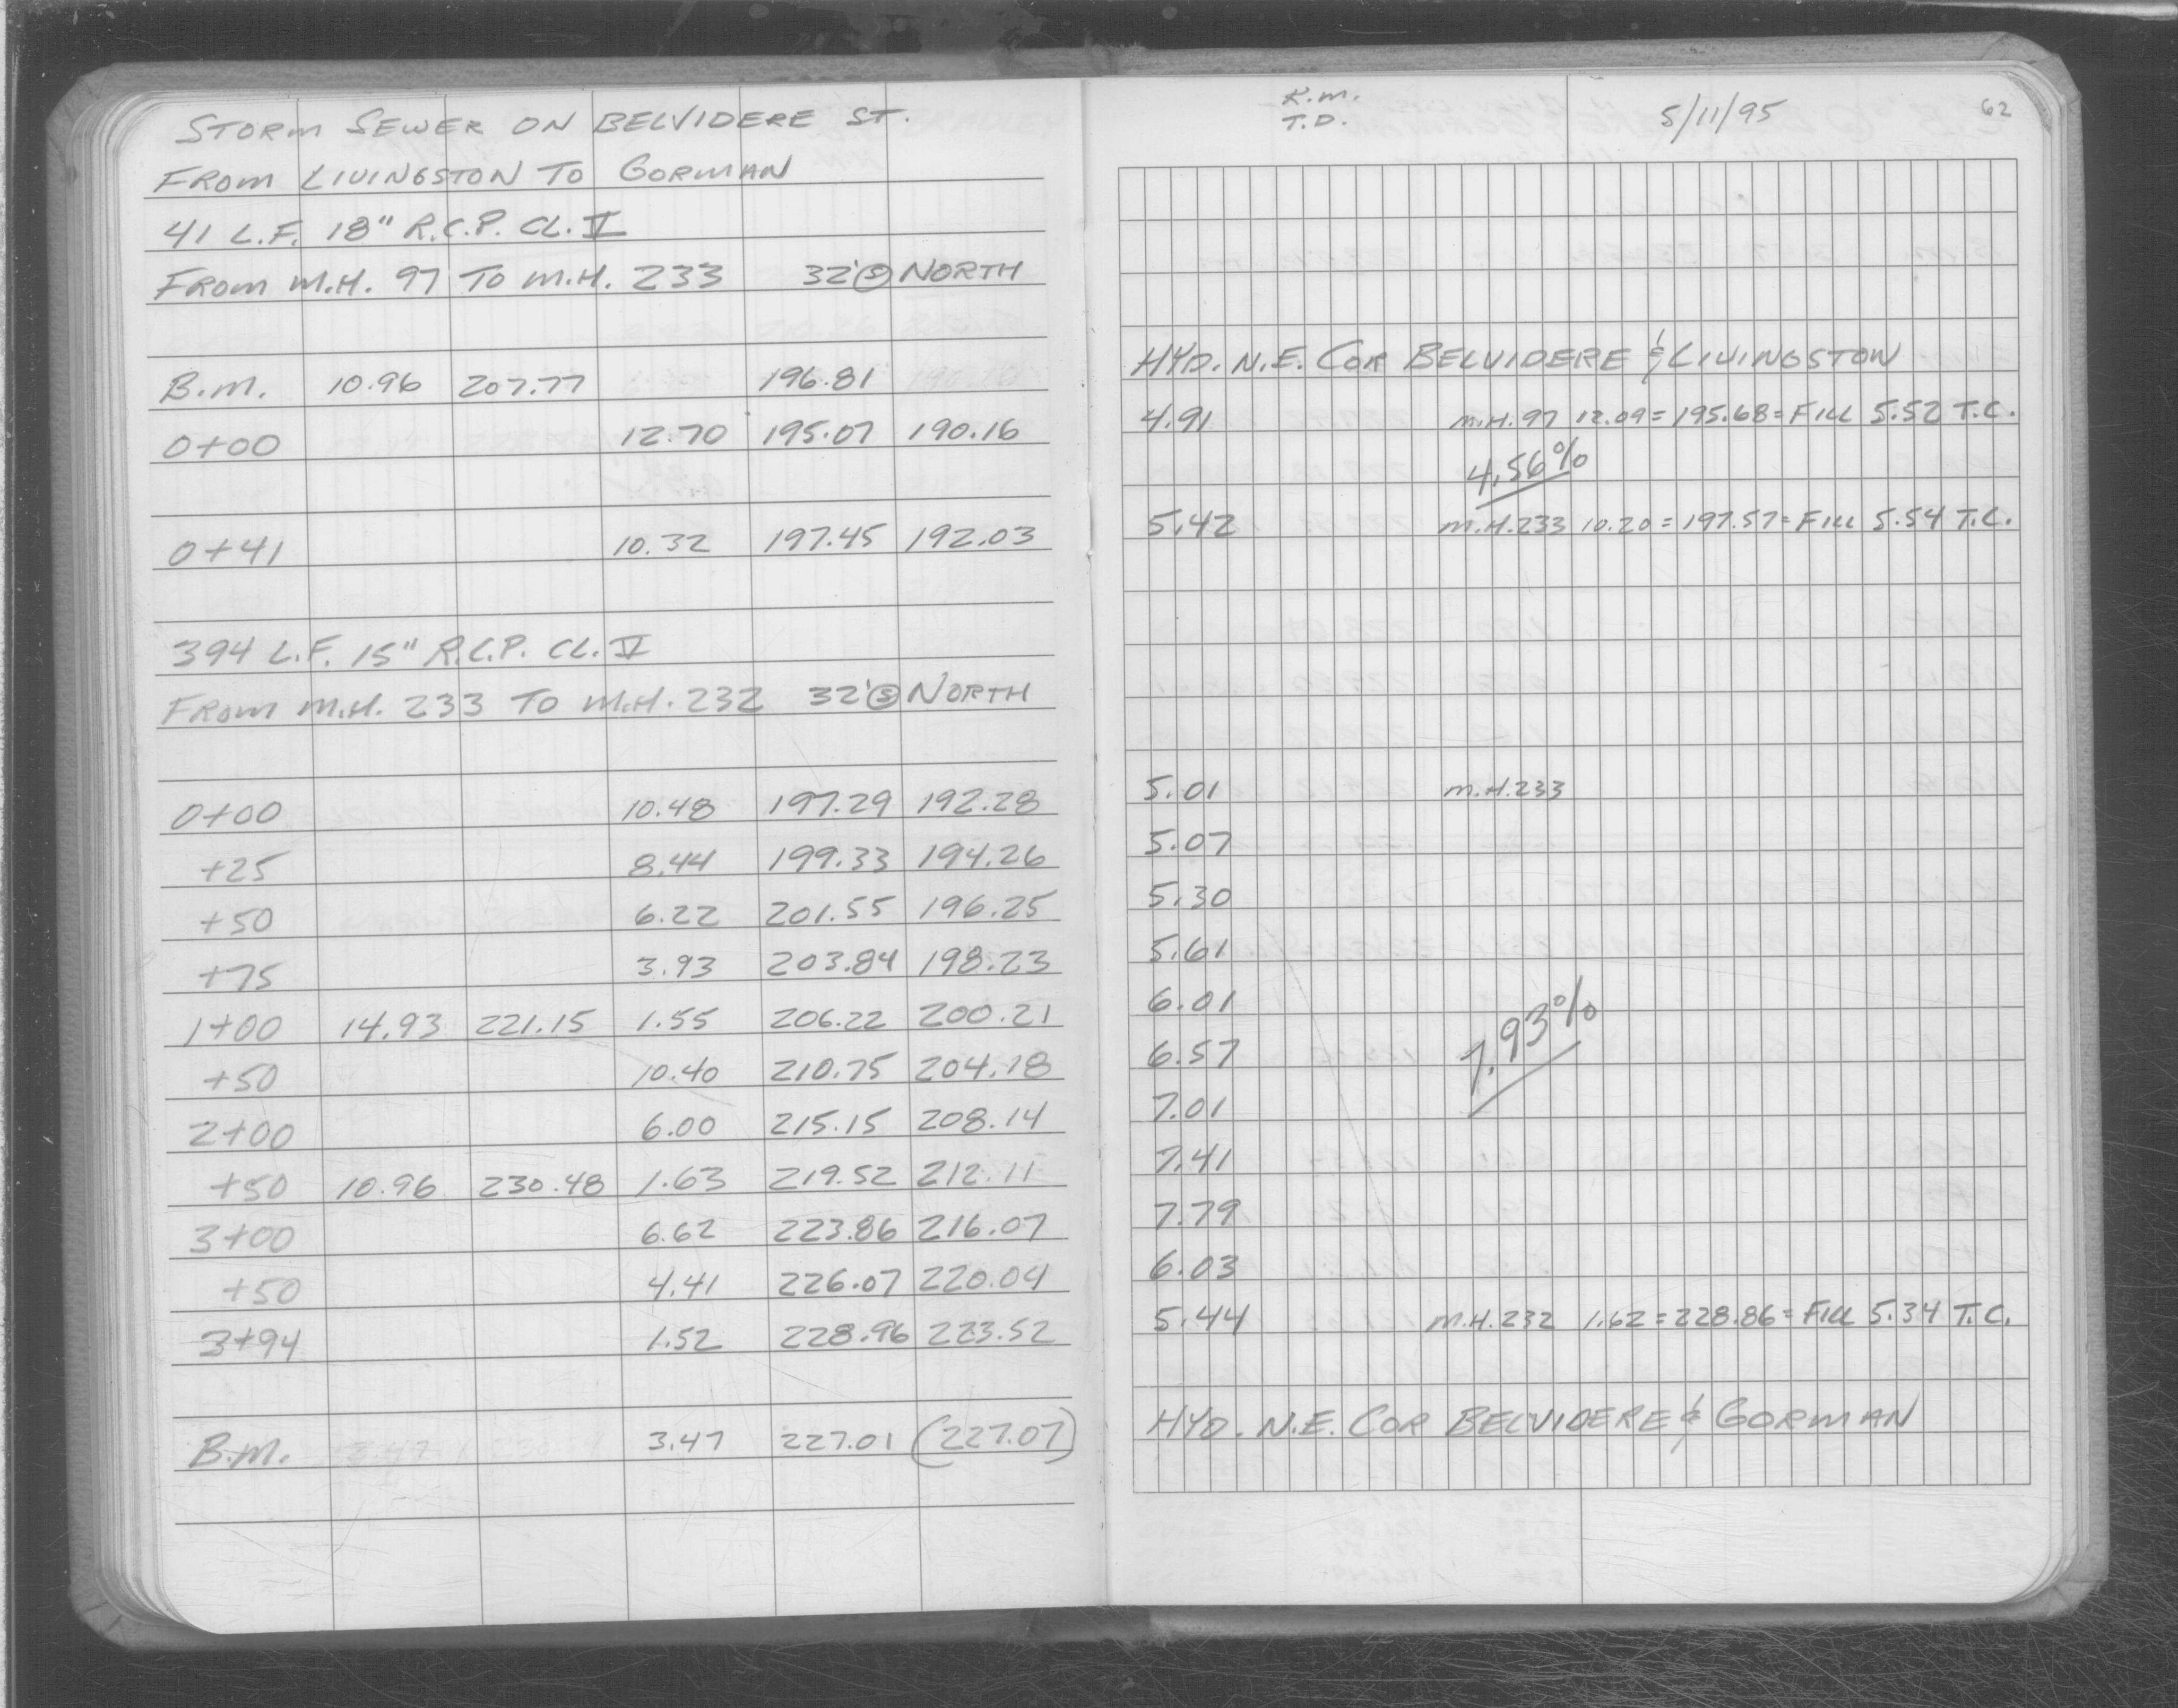 STORM SEWER ON BELVIDERE ST.
FROM LIVINGSTON TO GORMAN
41 L.F. 18" R.C.P. CL. V
FROM M.H. 97 TO M.H. 233 32' Ⓢ NORTH
B.M. 10.96 207.77 196.81
0+00 12.70 195.07 190.16
0+41 10.32 197.45 192.03
394 L.F. 15" R.C.P. CL. V
FROM M.H. 233 TO M.H. 232 32' Ⓢ NORTH
0+00 10.48 197.29 192.28
+25 8.44 199.33 194.26
+50 6.22 201.55 196.25
+75 3.93 203.84 198.23
1+00 14.93 221.15 1.55 206.22 200.21
+50 10.40 210.75 204.18
2+00 6.00 215.15 208.14
+50 10.96 230.48 1.63 219.52 212.11
3+00 6.62 223.86 216.07
+50 4.41 226.07 220.04
3+94 1.52 228.96 223.52
B.M. 3.47 227.01 (227.07)
K.M.
T.D.
5/11/95
62
HYD. N.E. COR BELVIDERE & LIVINGSTON
4.91 M.H.97 12.09 = 195.68 = FILL 5.52 T.C.
4.56%
5.42 M.H.233 10.20 = 197.57 = FILL 5.54 T.C.
5.01 M.H.233
5.07
5.30
5.61
6.01
7.93%
6.57
7.01
7.41
7.79
6.03
5.44 M.H.232 1.62 = 228.86 = FILL 5.34 T.C.
HYD. N.E. COR BELVIDERE & GORMAN